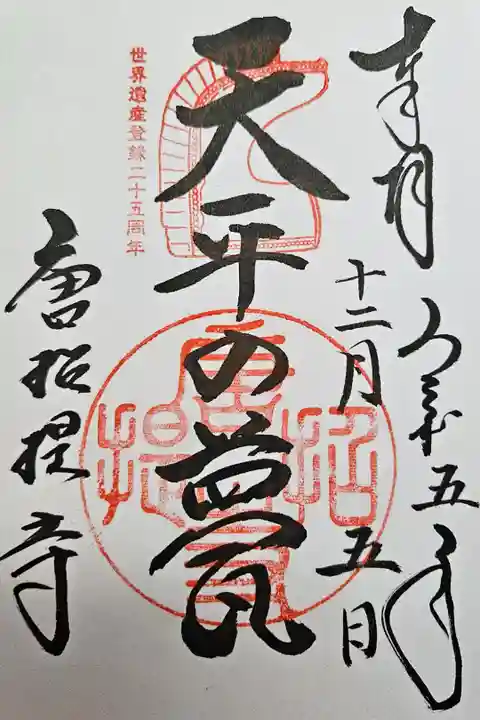 奉拝
令和五年
十二月五日
天平の甍
世界遺産登録二十五周年
唐招提寺
唐招提寺